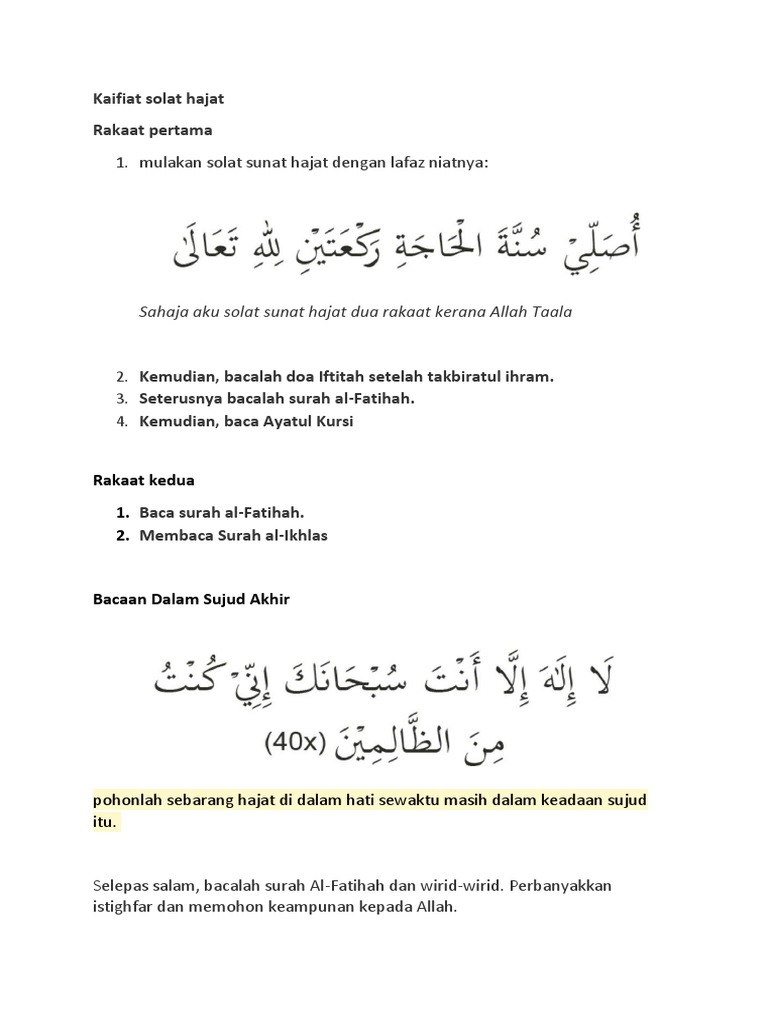 Kaifiat solat hajat
Rakaat pertama
1. mulakan solat sunat hajat dengan lafaz niatnya:
أُصَلِّيْ سُنَّةَ الْحَاجَةِ رَكْعَتَيْنِ لِلّٰهِ تَعَالَىٰ
Sahaja aku solat sunat hajat dua rakaat kerana Allah Taala
2. Kemudian, bacalah doa Iftitah setelah takbiratul ihram.
3. Seterusnya bacalah surah al-Fatihah.
4. Kemudian, baca Ayatul Kursi
Rakaat kedua
1. Baca surah al-Fatihah.
2. Membaca Surah al-Ikhlas
Bacaan Dalam Sujud Akhir
لَا إِلَٰهَ إِلَّا أَنْتَ سُبْحَانَكَ إِنِّيْ كُنْتُ
مِنَ الظَّالِمِيْنَ (40x)
pohonlah sebarang hajat di dalam hati sewaktu masih dalam keadaan sujud
itu.
Selepas salam, bacalah surah Al-Fatihah dan wirid-wirid. Perbanyakkan
istighfar dan memohon keampunan kepada Allah.